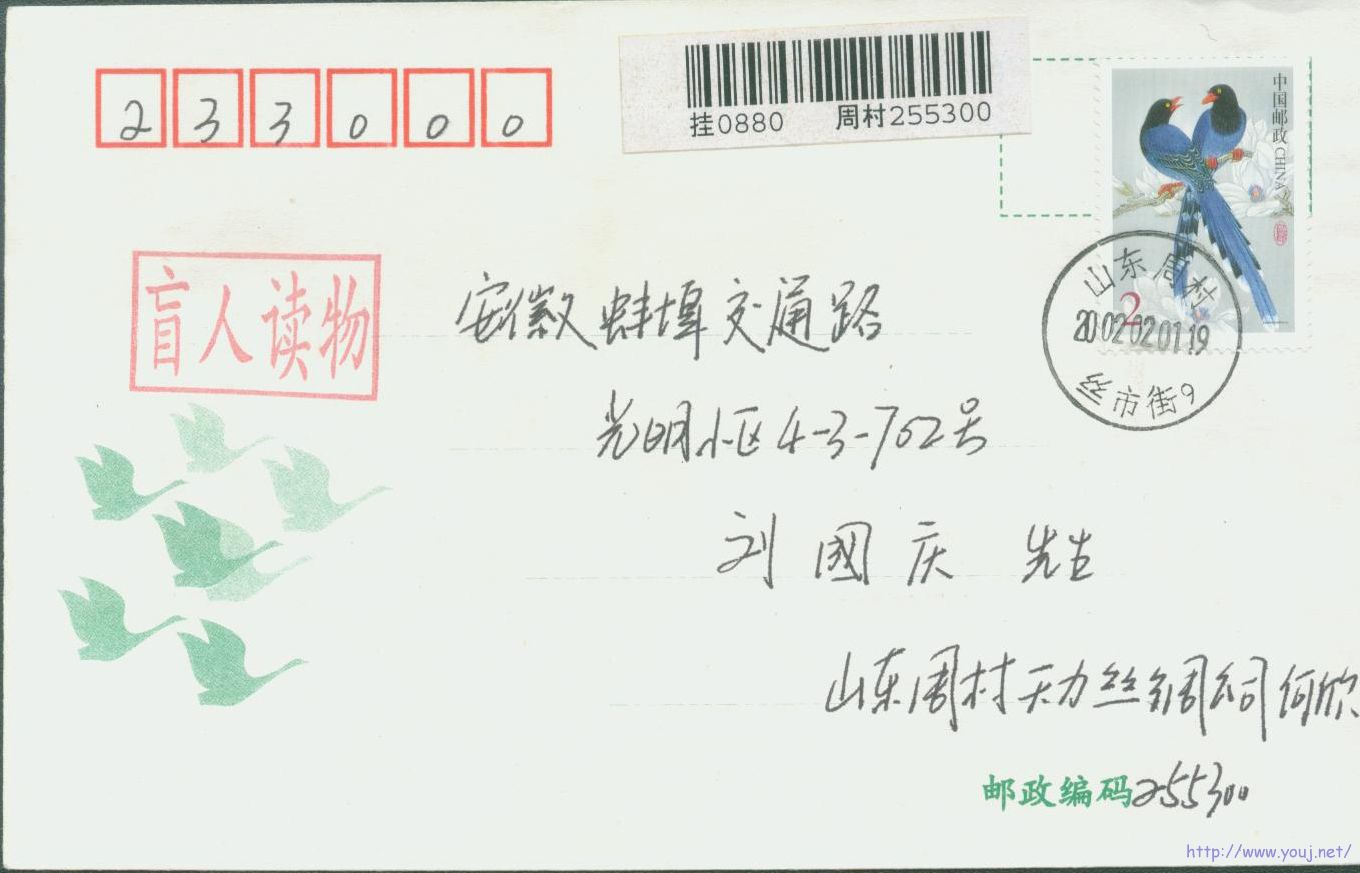 233000
挂0880 周村255300
中国邮政 CHINA
2
山东周村
2002 02 01 19
丝市街9
盲人读物
安徽蚌埠交通路
光明小区4-3-702号
刘國庆 先生
山东周村天力丝绸公司 何欣
邮政编码255300
http://www.youj.net/